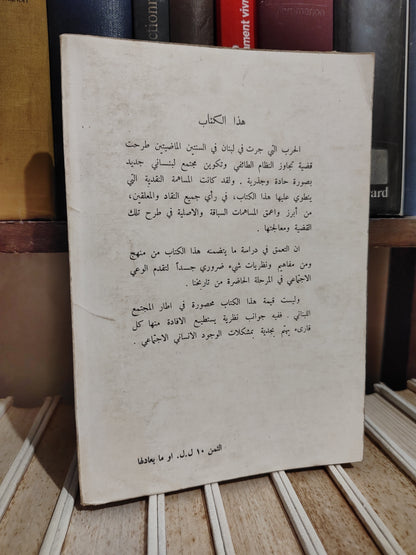 هذا الكتاب
الحرب التي جرت في لبنان في السنتين الماضيتين طرحت
قضية تجاوز النظام الطائفي وتكوين مجتمع لبناني جديد
بصورة حادة وجذرية . ولقد كانت المساهمة النقدية التي
ينطوي عليها هذا الكتاب، في رأي جميع النقاد والمعلقين،
من أبرز واعمق المساهمات السباقة والاصلية في طرح تلك
القضية ومعالجتها .
ان التعمق في دراسة ما يتضمنه هذا الكتاب من منهج
ومن مفاهيم ونظريات شيء ضروري جداً لتقدم الوعي
الاجتماعي في المرحلة الحاضرة من تاريخنا .
وليست قيمة هذا الكتاب محصورة في اطار المجتمع
اللبناني . ففيه جوانب نظرية يستطيع الافادة منها كل
قارىء يهتم بجدية بمشكلات الوجود الانساني الاجتماعي .
الثمن ١٠ ل.ل. او ما يعادلها